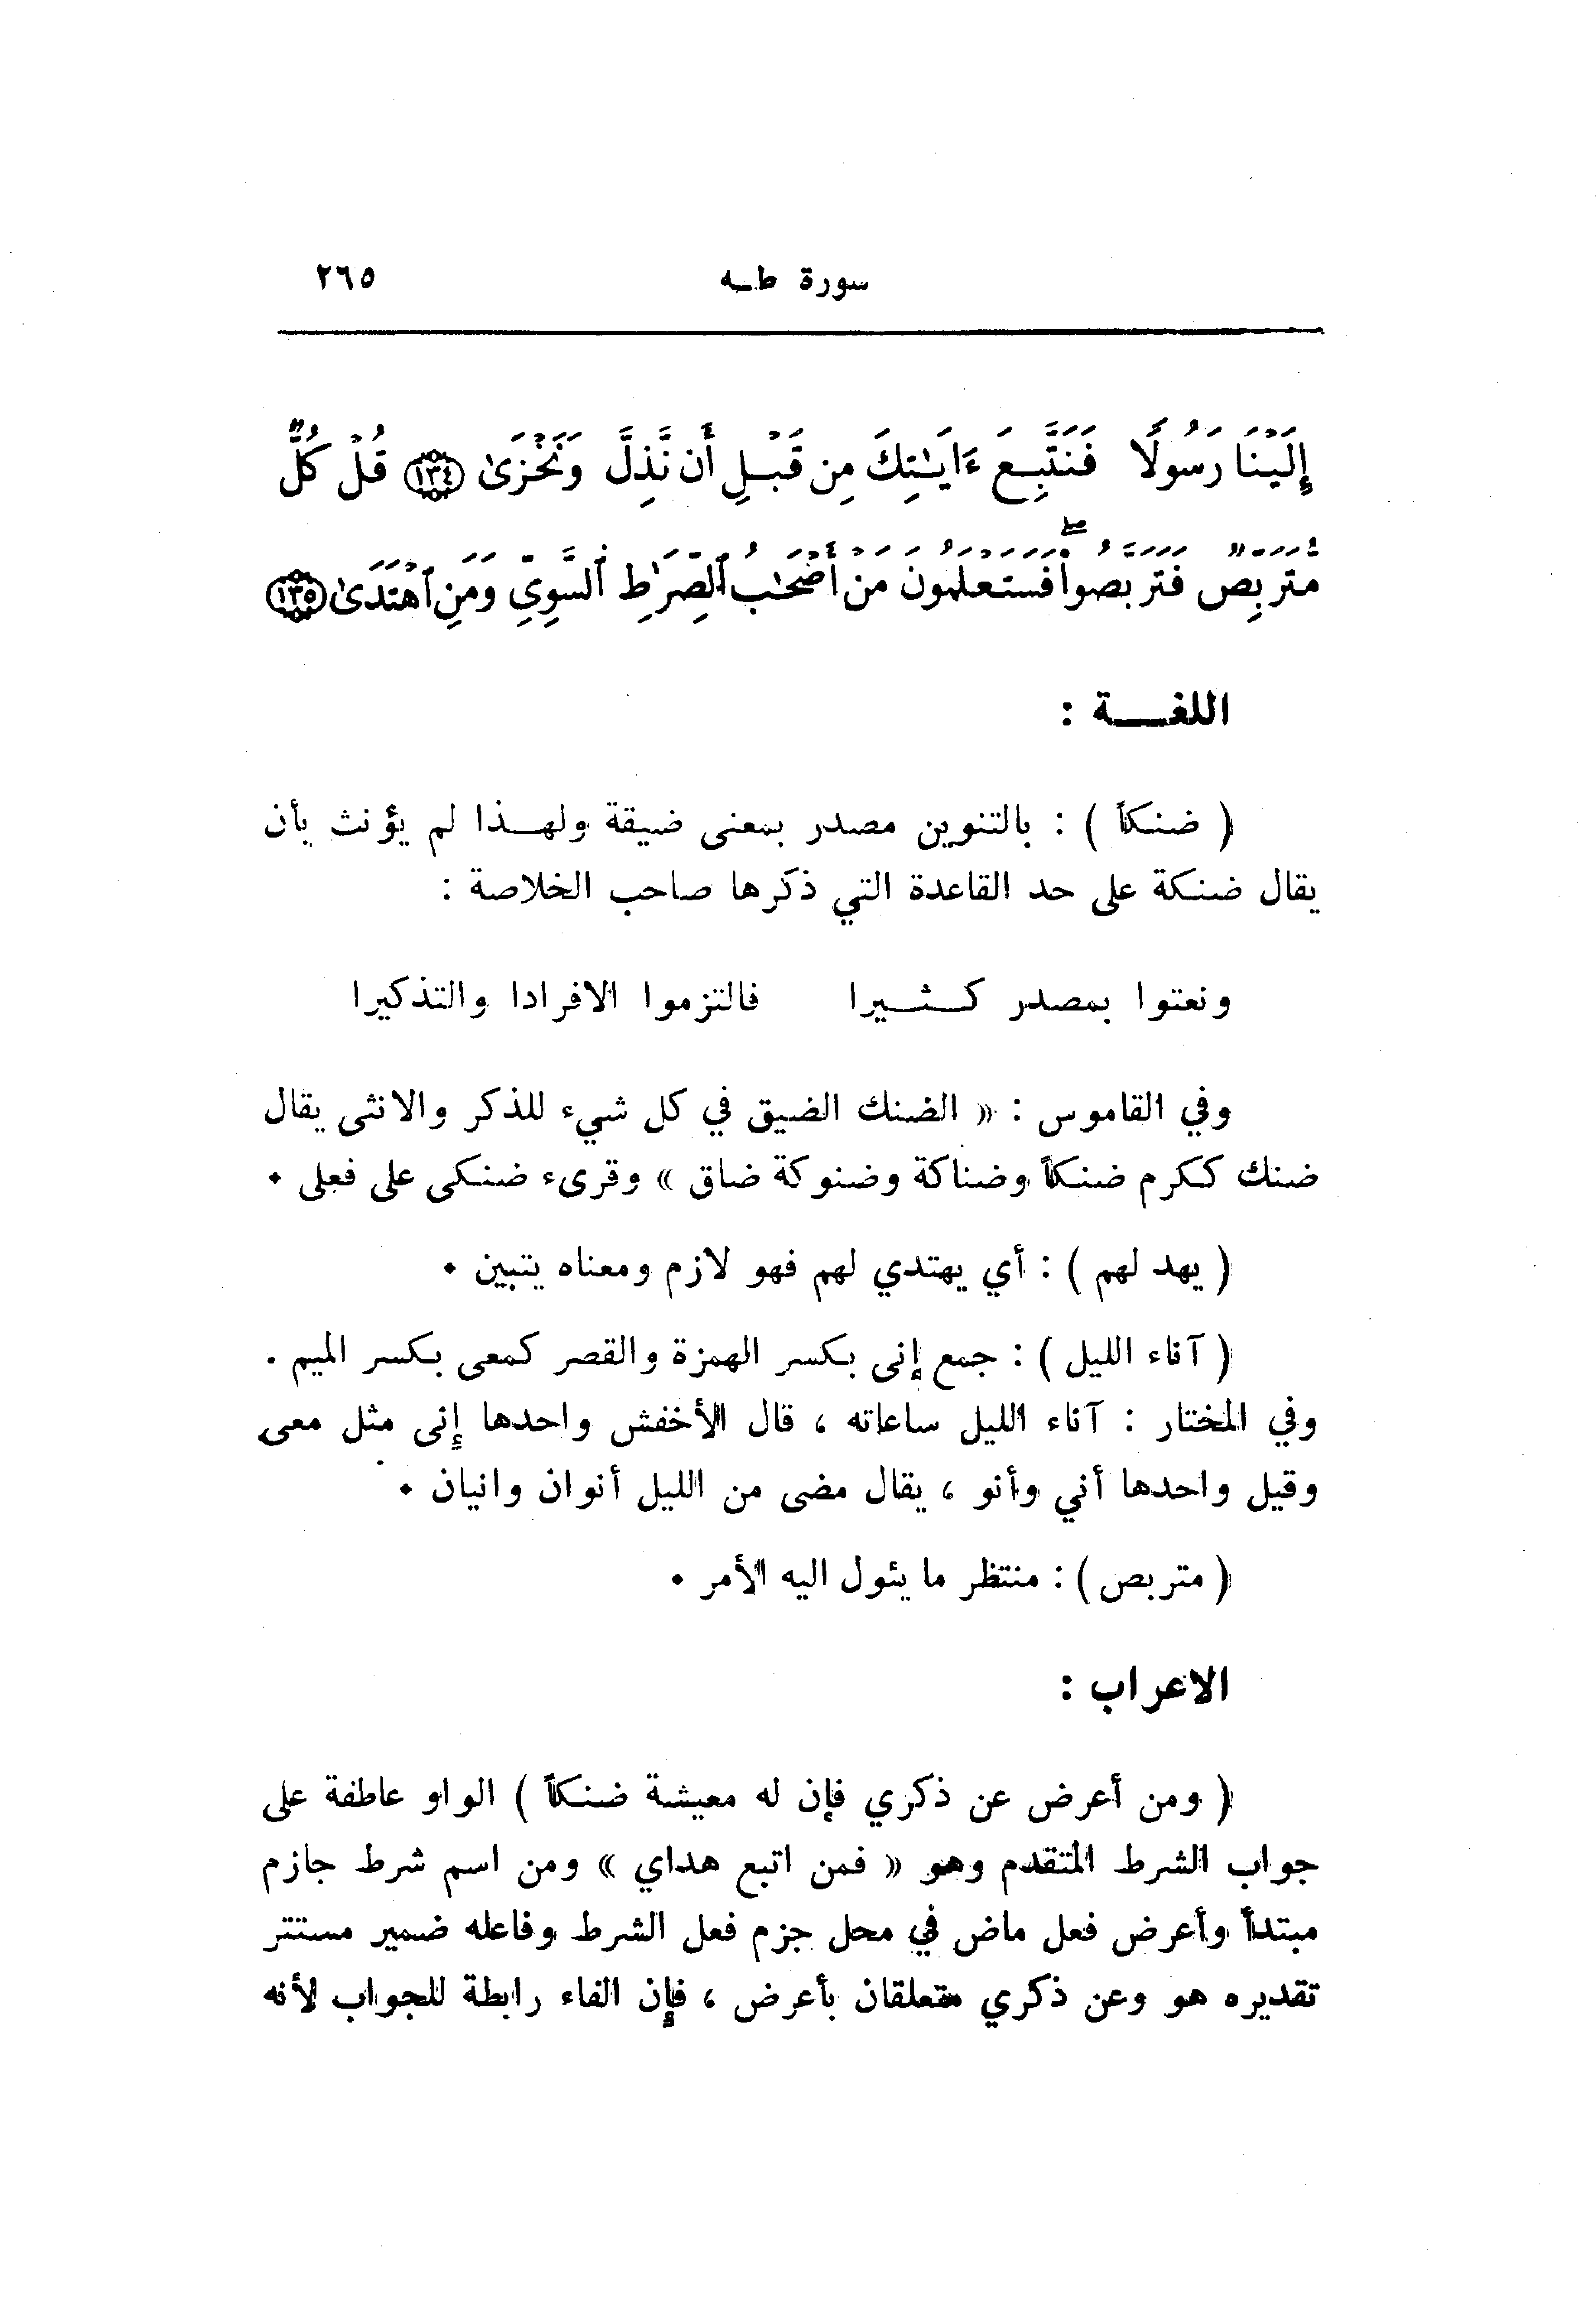 سورة طـه ٢٦٥
إِلَيْنَا رَسُولًا فَنَتَّبِعَ ءَايَٰتِكَ مِن قَبْلِ أَن نَّذِلَّ وَنَخْزَىٰ ﴿١٣٤﴾ قُلْ كُلٌّ
مُّتَرَبِّصٌ فَتَرَبَّصُواْۖ فَسَتَعْلَمُونَ مَنْ أَصْحَٰبُ ٱلصِّرَٰطِ ٱلسَّوِيِّ وَمَنِ ٱهْتَدَىٰ ﴿١٣٥﴾
اللغــة :
( ضنكاً ) : بالتنوين مصدر بمعنى ضيقة ولهـذا لم يؤنث بأن
يقال ضنكة على حد القاعدة التي ذكرها صاحب الخلاصة :
ونعتوا بمصدر كـثـيرا فالتزموا الافرادا والتذكيرا
وفي القاموس : « الضنك الضيق في كل شيء للذكر والانثى يقال
ضنك ككرم ضنكاً وضناكة وضنوكة ضاق » وقرىء ضنكى على فعلى .
( يهد لهم ) : أي يهتدي لهم فهو لازم ومعناه يتبين .
( آناء الليل ) : جمع إنى بكسر الهمزة والقصر كمعى بكسر الميم .
وفي المختار : آناء الليل ساعاته ، قال الأخفش واحدها إنى مثل معى
وقيل واحدها أني وأنو ، يقال مضى من الليل أنوان وانيان .
( متربص ) : منتظر ما يئول اليه الأمر .
الاعراب :
( ومن أعرض عن ذكري فإن له معيشة ضنكاً ) الواو عاطفة على
جواب الشرط المتقدم وهو « فمن اتبع هداي » ومن اسم شرط جازم
مبتدأ وأعرض فعل ماض في محل جزم فعل الشرط وفاعله ضمير مستتر
تقديره هو وعن ذكري متعلقان بأعرض ، فإن الفاء رابطة للجواب لأنه